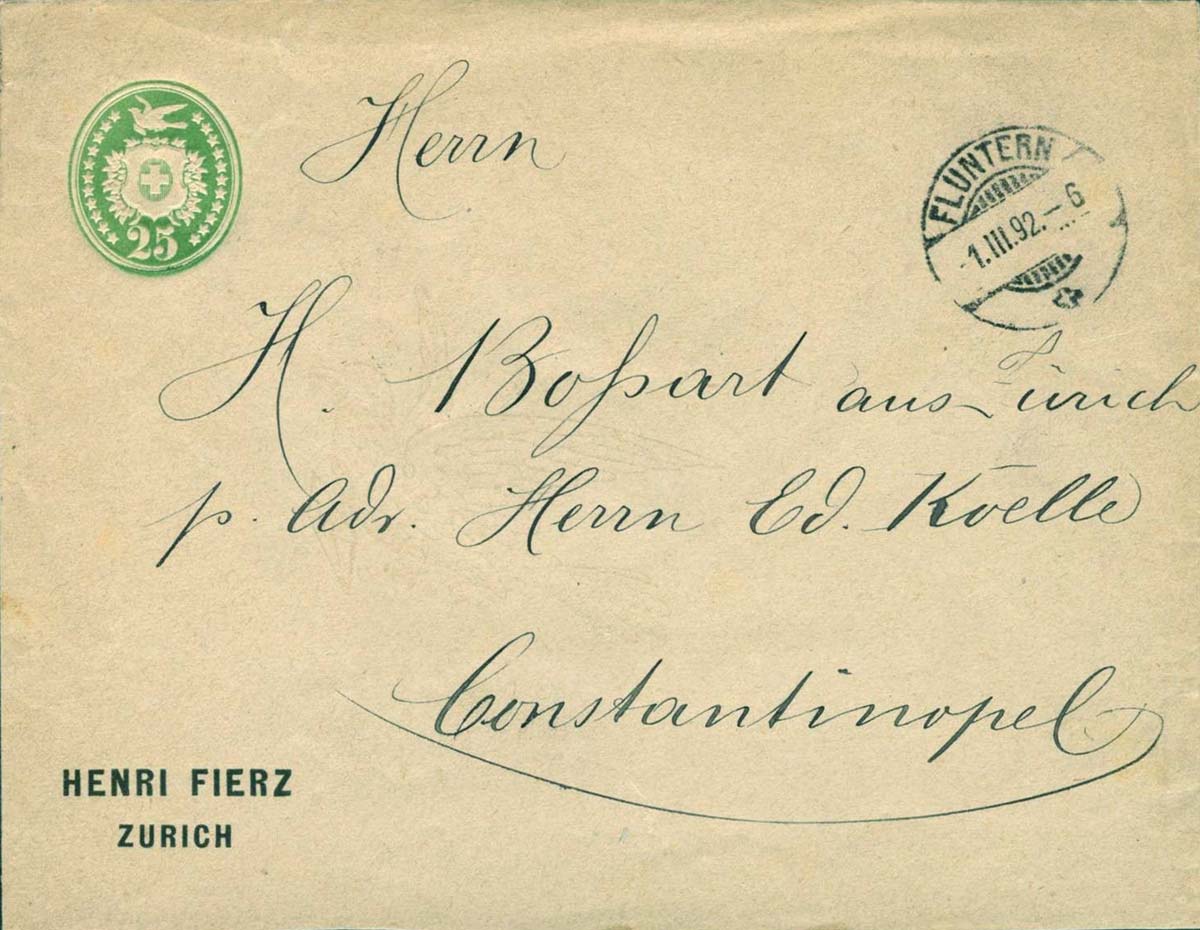 25
Herrn
FLUNTERN
-1.III.92.-6
H. Boßart aus Zürich
p. Adr. Herrn Ed. Koelle
Constantinopel
HENRI FIERZ
ZURICH